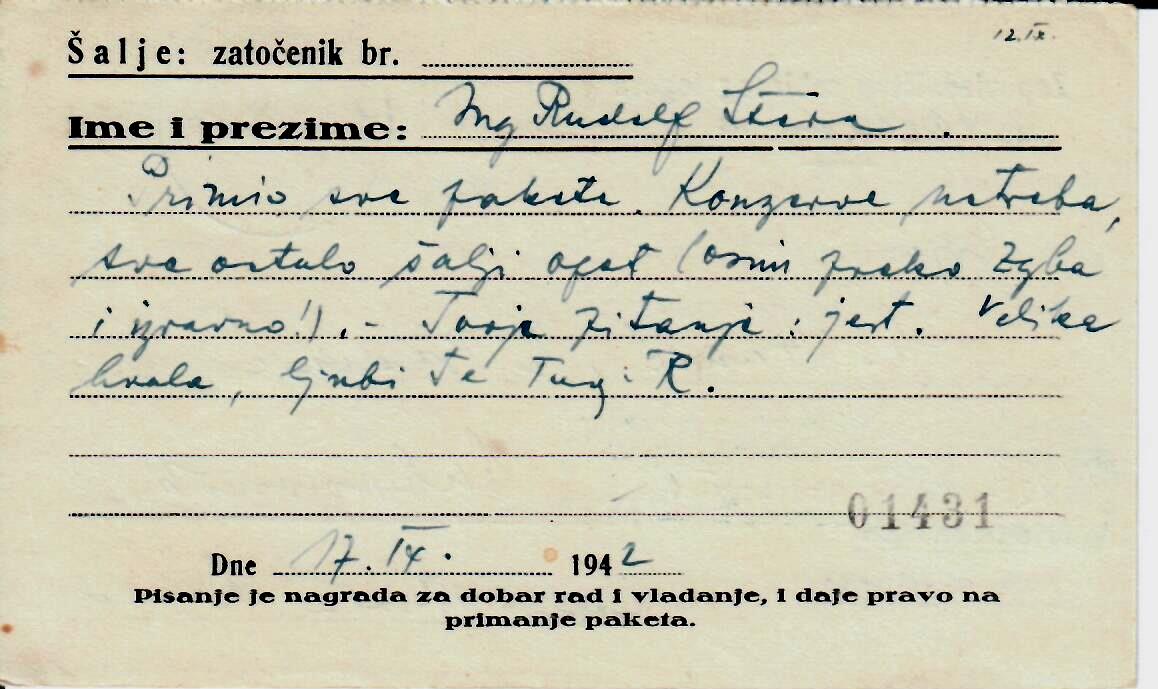 12.IX.
Šalje: zatočenik br.
Ime i prezime: Ing Rudolf
Primio sve pakete. Konzerve netreba,
sve ostalo šalji opet (osim preko Zgba
i izravno!). - Tvoje pitanje: jest. Velika
hvala, ljubi Te Tvoj R.
01431
Dne 17. IX. 1942
Pisanje je nagrada za dobar rad i vladanje, i daje pravo na
primanje paketa.